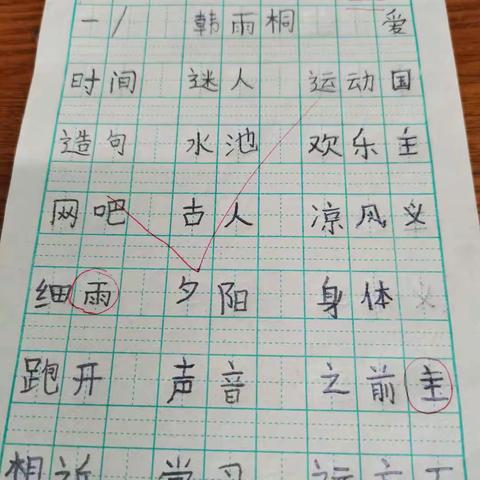 一/ 韩雨桐 爱
时间 迷人 运动国
造句 水池 欢乐主
网吧 古人 凉风义
细雨 夕阳 身体
跑开 声音 之前主
相近 学习 远方